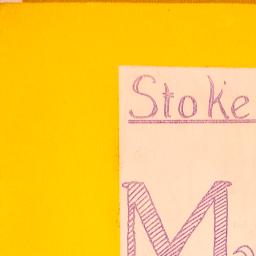 Stoke
M